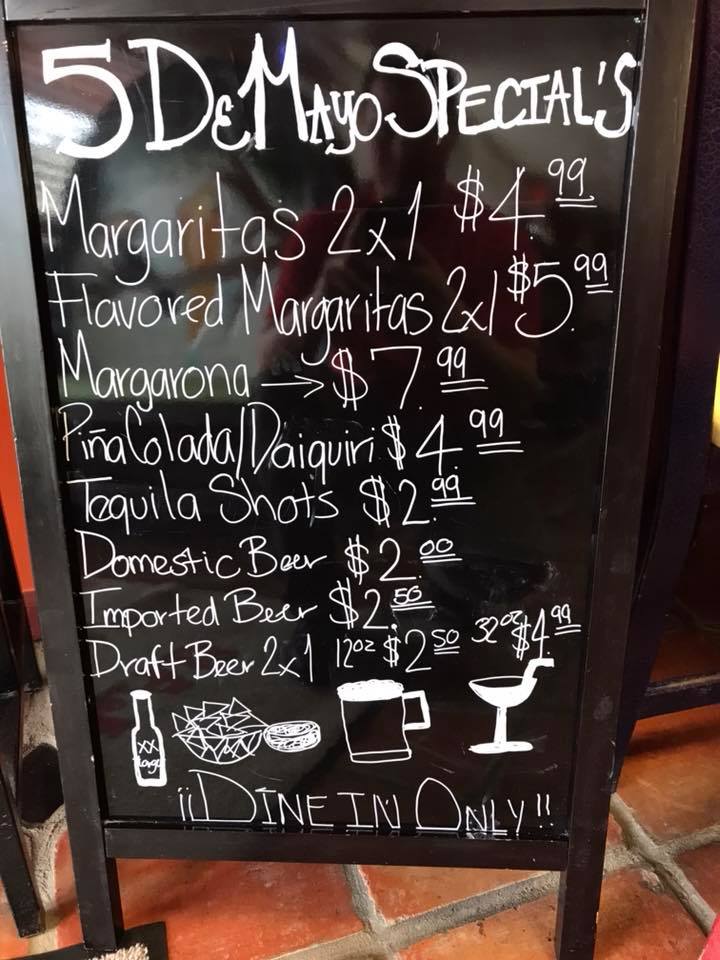 5 De Mayo Special's
Margaritas 2x1 $4.99
Flavored Margaritas 2x1 $5.99
Margarona → $7.99
Piña Colada/Daiquiri $4.99
Tequila Shots $2.99
Domestic Beer $2.00
Imported Beer $2.50
Draft Beer 2x1 12oz $2.50 32oz $4.99
XX
Lager
¡¡Dine In Only!!